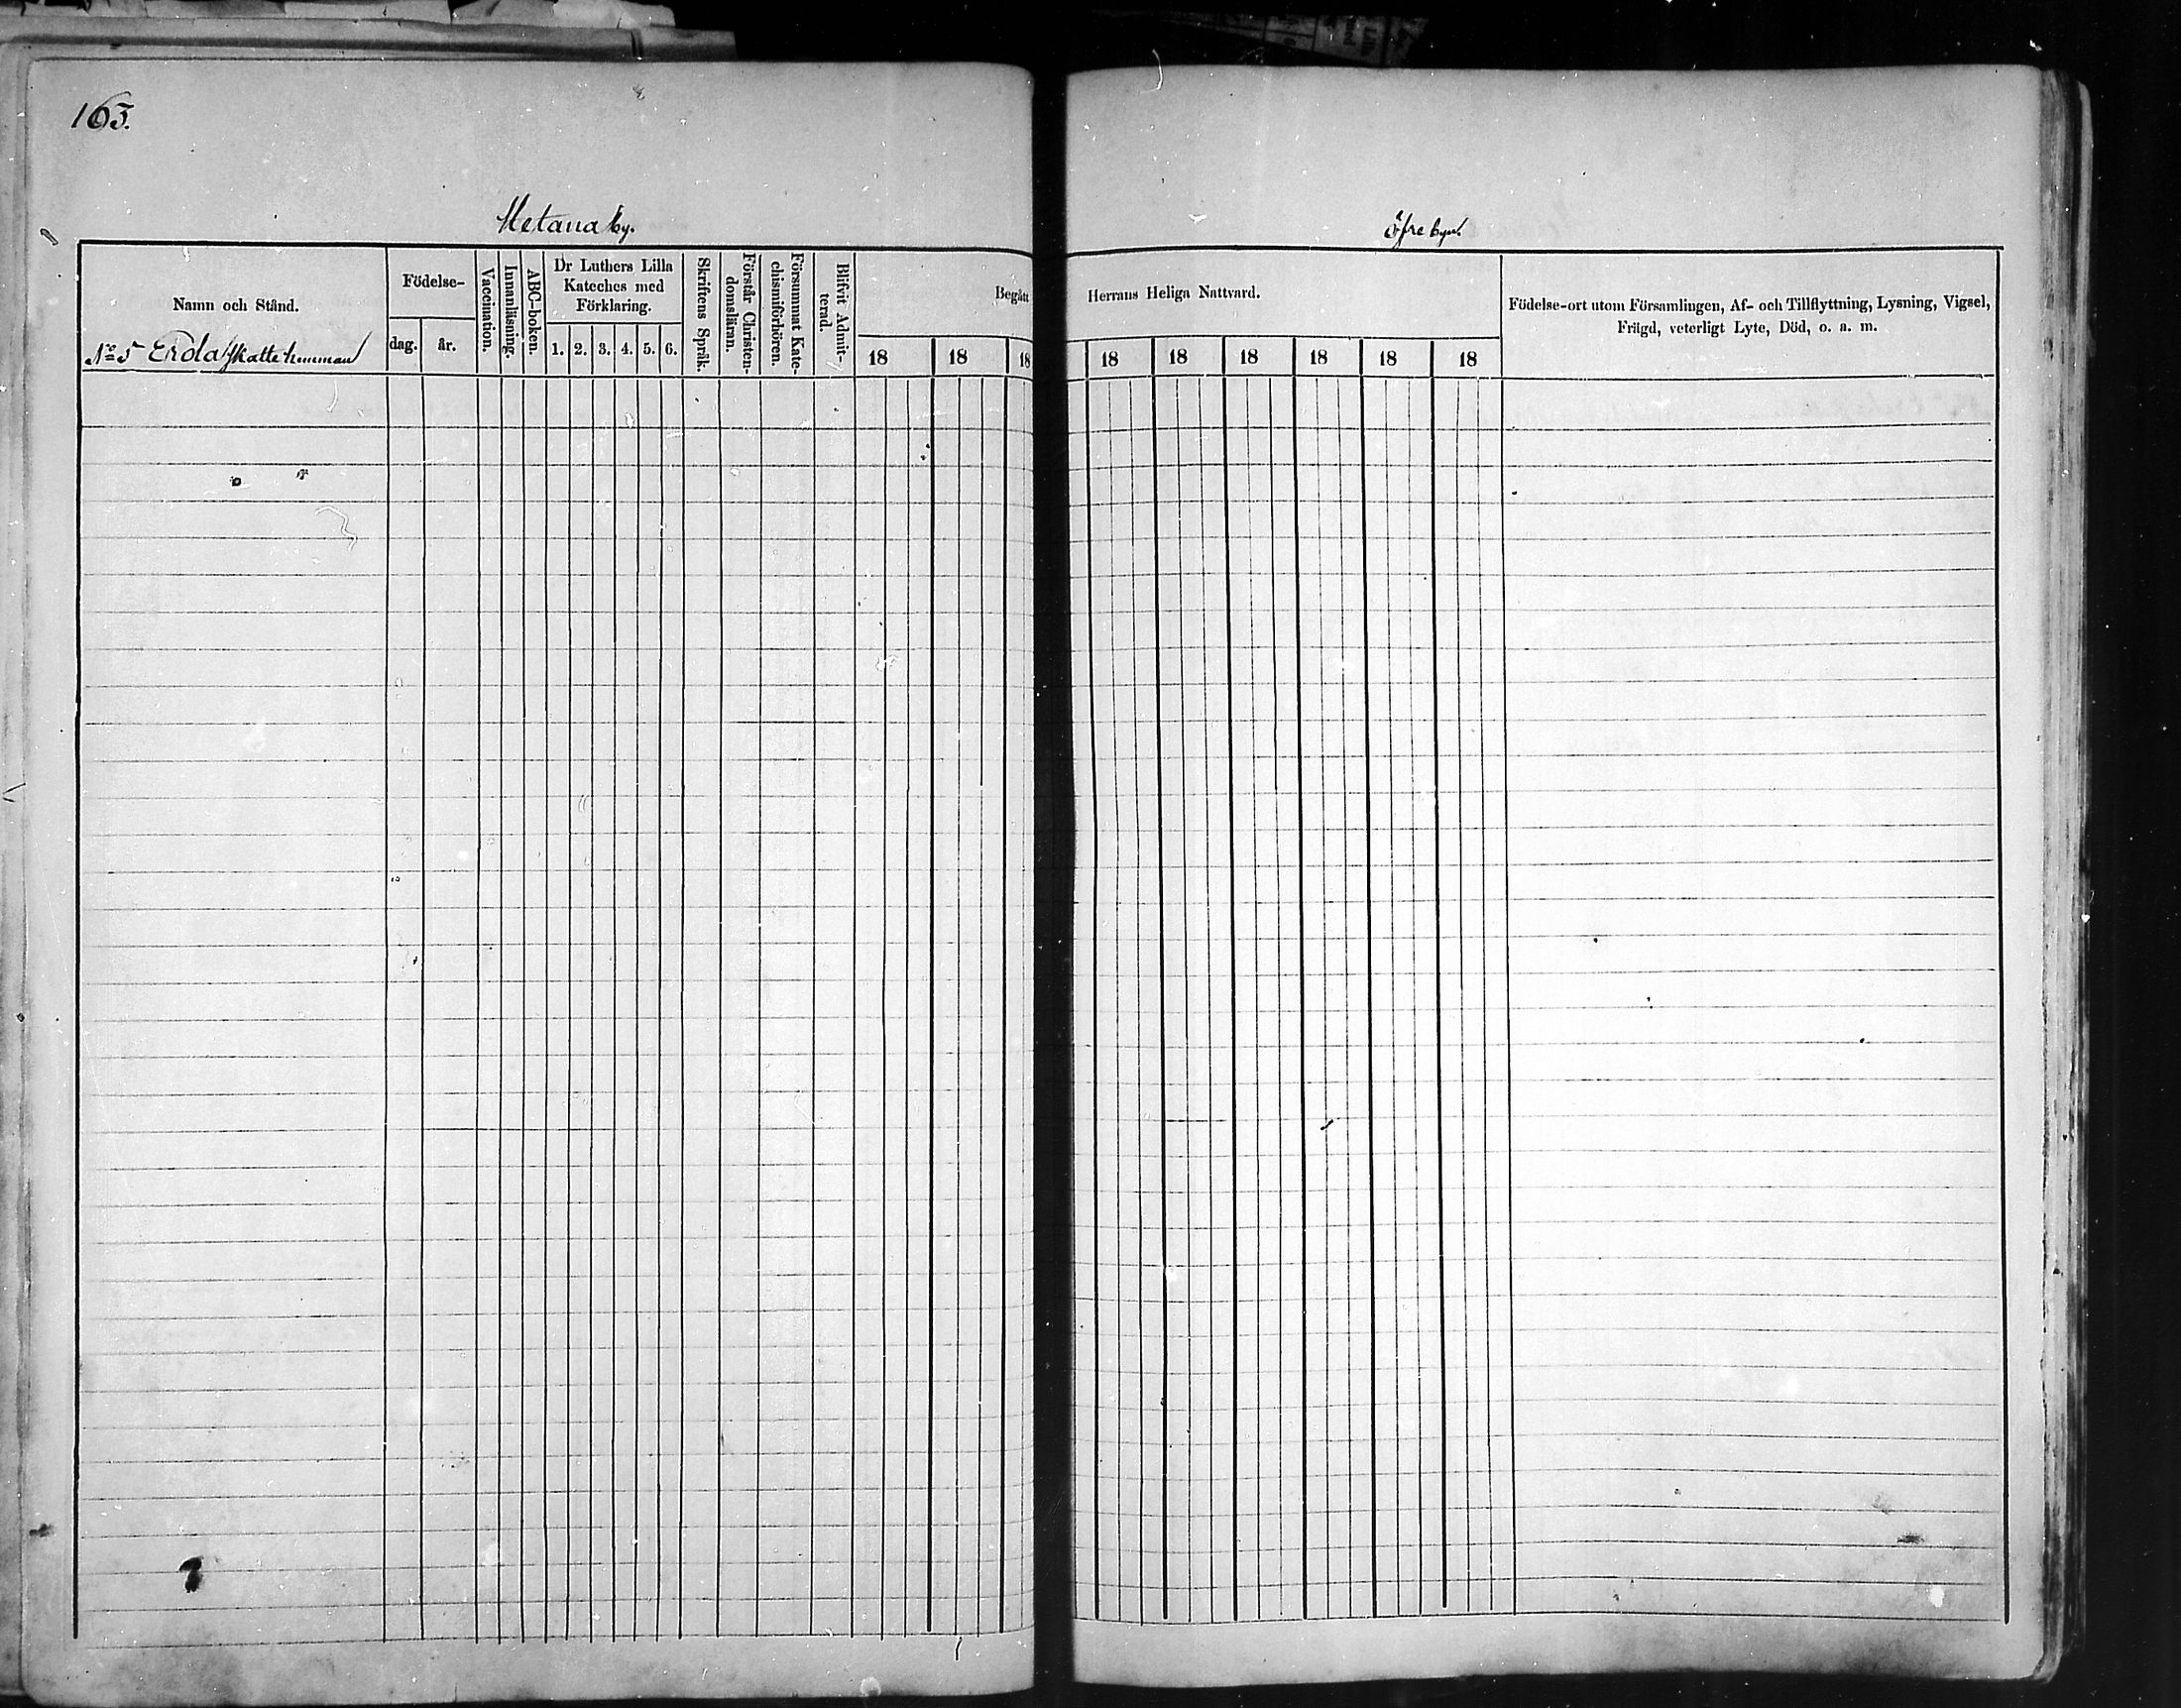 163.
Metana by.
öfre byn.
Namn och Stånd.
Födelse-
dag.
år.
Vaccination.
Innanläsning.
ABC-boken.
Dr Luthers Lilla
Kateches med
Förklaring.
1. 2. 3. 4. 5. 6.
Skriftens Språk.
Förstår Christen-
domsläran.
Försummat Kate-
chismiförhören.
Blifvit Admit-
terad.
Begått
Herrans Heliga Nattvard.
18 18 18
18 18 18 18 18 18
Födelse-ort utom Församlingen, Af- och Tillflyttning, Lysning, Vigsel,
Frägd, veterligt Lyte, Död, o. a. m.
No 5 Erola Skattehemman